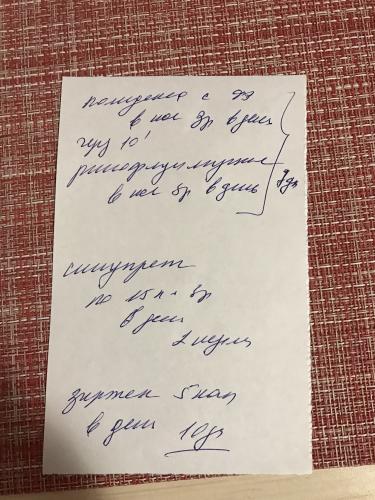 полидекса с фэ
в нос 3р в день
чрз 10'
ринофлуимуцил
в нос 3р в день
7 дн
синупрет
по 15 к 3р
в день
2 недели
зиртек 5 кап
в день 10 дн